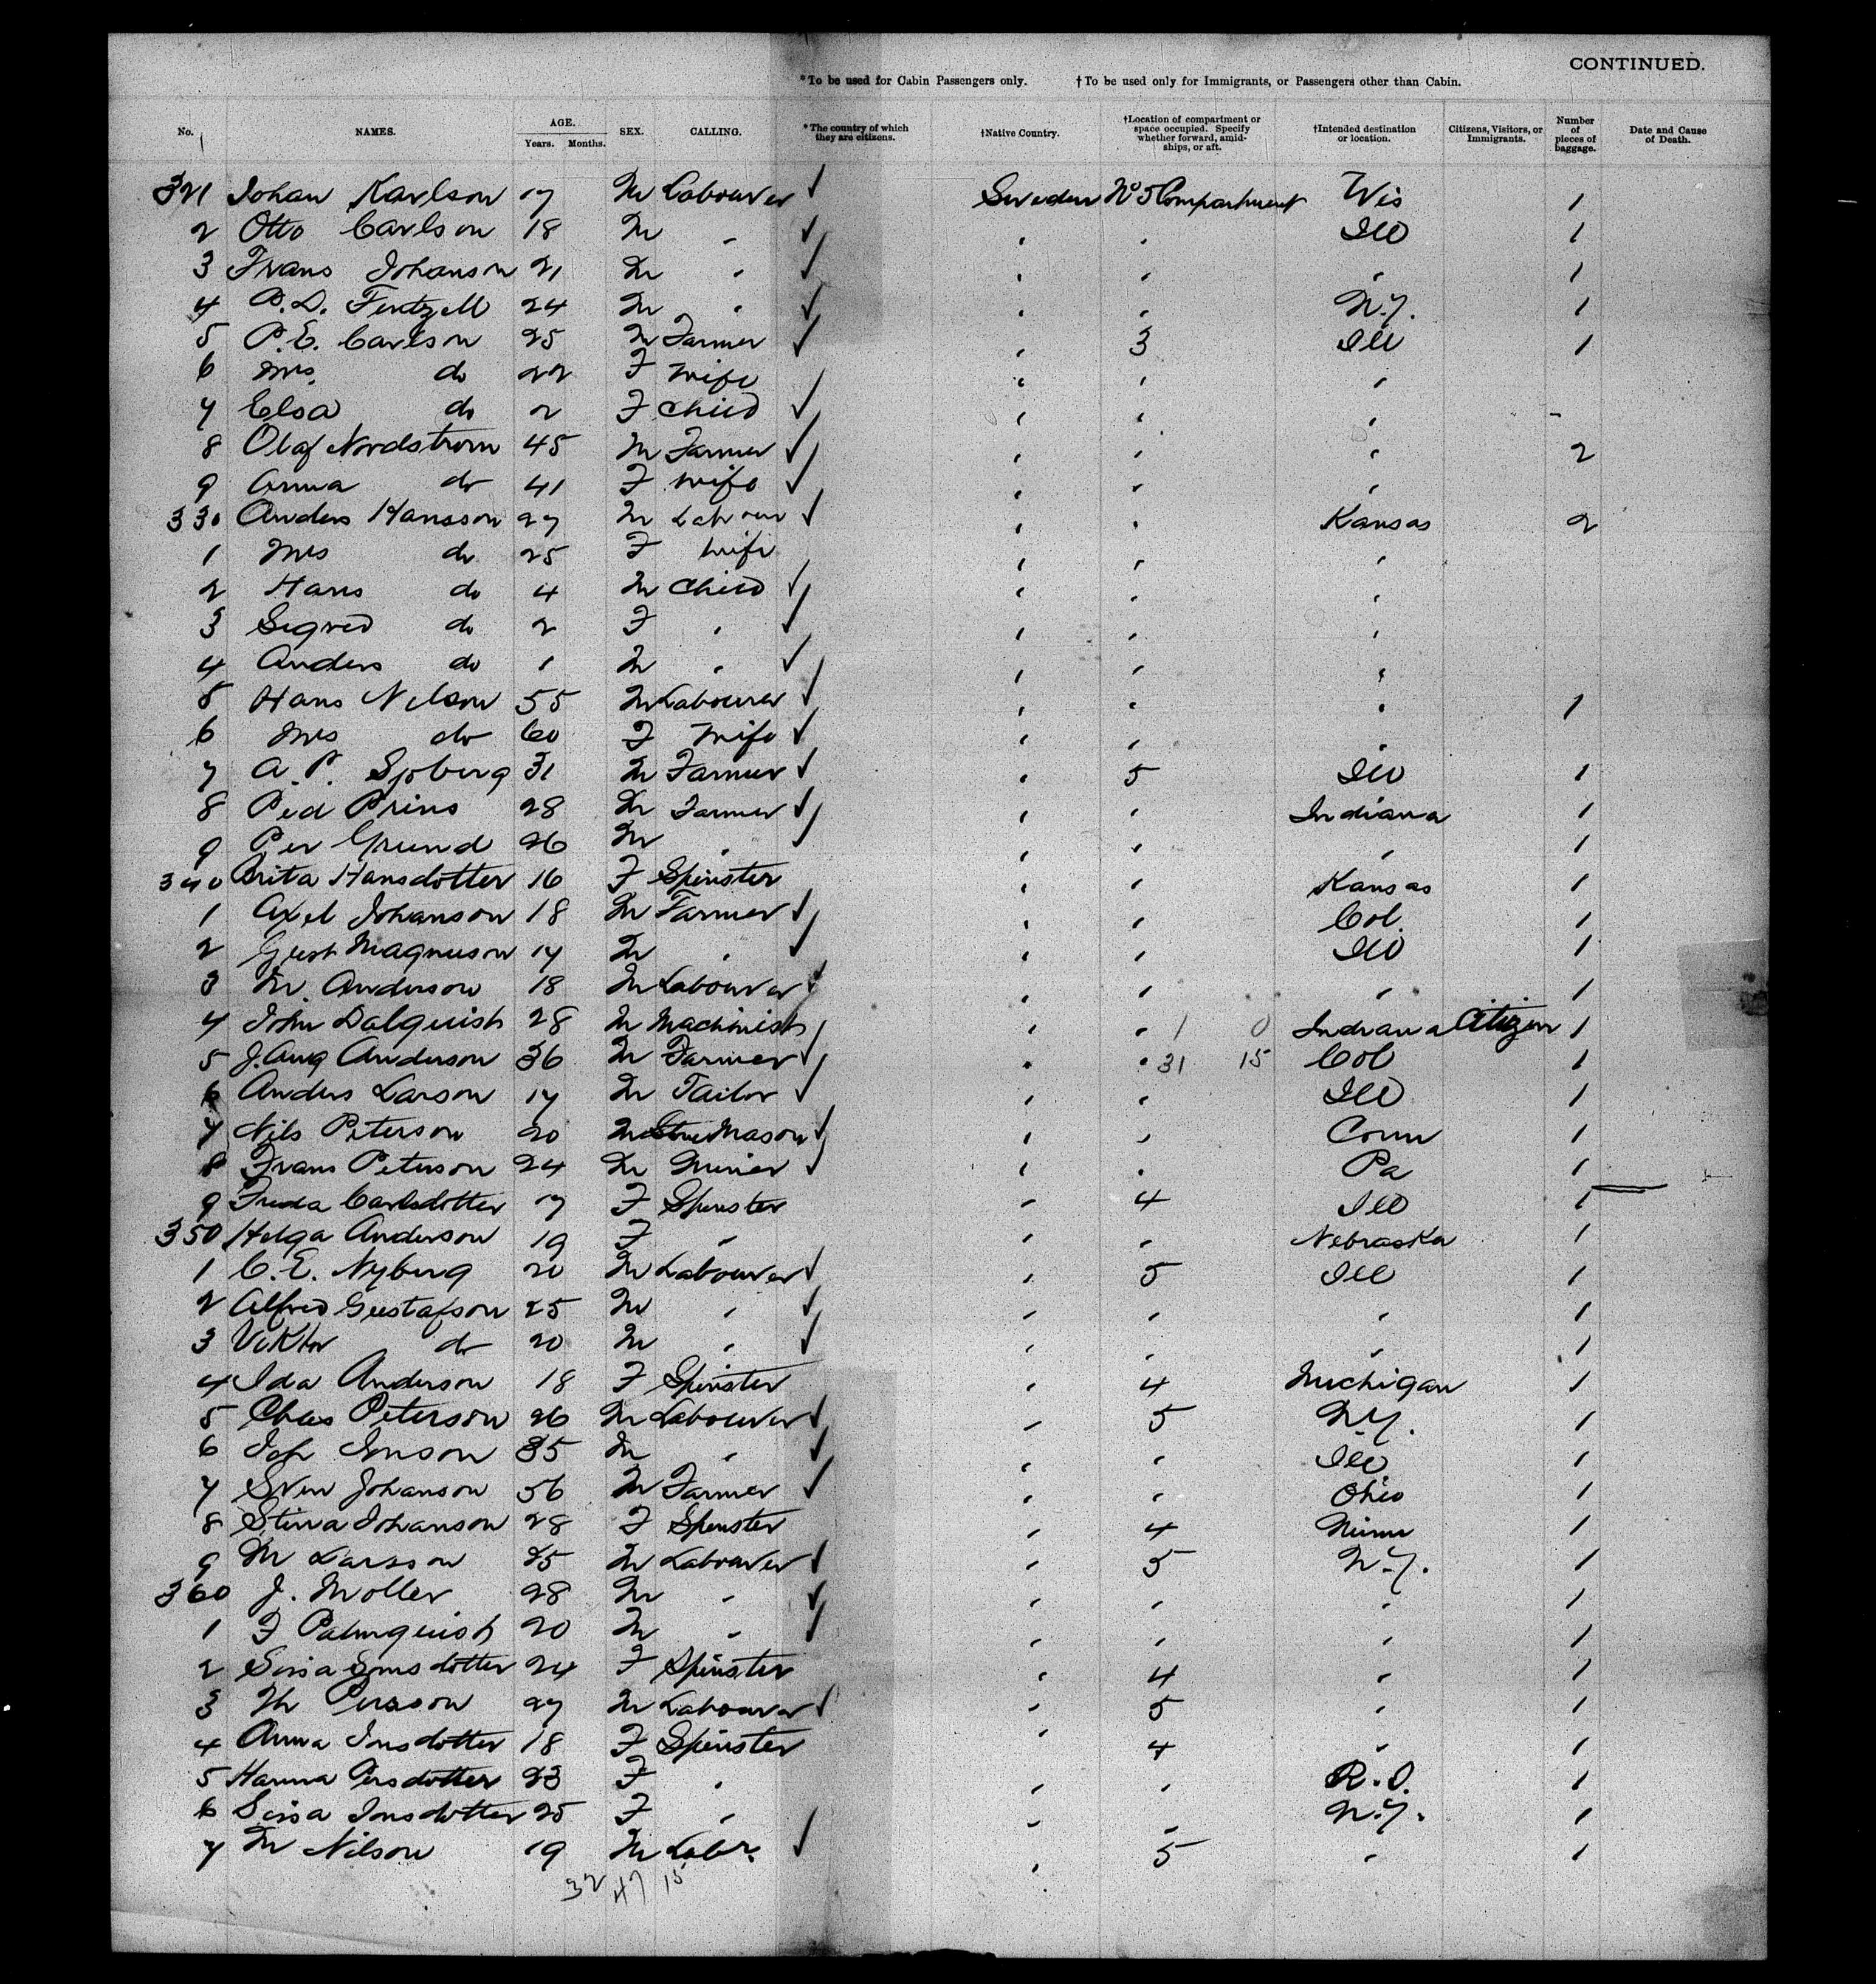 CONTINUED.
*To be used for Cabin Passengers only. †To be used only for Immigrants, or Passengers other than Cabin.
No. NAMES. AGE. Years. Months. SEX. CALLING. *The country of which they are citizens. †Native Country. †Location of compartment or space occupied. Specify whether forward, amidships, or aft. †Intended destination or location. Citizens, Visitors, or Immigrants. Number of pieces of baggage. Date and Cause of Death.
321 Johan Karlson 17 M Labourer ✓ Sweden No 5 Compartment Wis 1
2 Otto Carlson 18 M " ✓ " " Ill 1
3 Frans Johanson 21 M " ✓ " " " 1
4 24 M " ✓ " " N.Y. 1
5 P.E. Carlson 25 M Farmer ✓ " 3 Ill 1
6 Mrs do 22 F Wife " " "
7 Elsa do 2 F Child ✓ " " " -
8 Olaf Nordstrom 45 M Farmer ✓ " " " 2
9 Anna do 41 F Wife ✓ " " "
330 Anders Hansson 27 M Labour ✓ " " Kansas 2
1 Mrs do 25 F Wife " " "
2 Hans do 4 M Child ✓ " " "
3 Sigred do 2 F " ✓ " " "
4 Anders do 1 M " ✓ " " "
5 Hans Nelson 55 M Labourer ✓ " " " 1
6 Mrs do 60 F Wife ✓ " " "
7 A.P. Sjoberg 31 M Farmer ✓ " 5 Ill 1
8 Prins 28 M Farmer ✓ " " Indiana 1
9 Per Grund 26 M " ✓ " " " 1
340 Brita Hansdotter 16 F Spinster " " Kansas 1
1 Axel Johanson 18 M Farmer ✓ " " Col. 1
2 Gust Magnuson 17 M " ✓ " " Ill 1
3 M. Anderson 18 M Labourer ✓ " " " 1
4 John Dalquist 28 M Machinist ✓ " " 1 0 Indiana Citizen 1
5 J. Aug Anderson 36 M Farmer ✓ " " 31 15 Col 1
6 Anders Larson 17 M Tailor ✓ " " Ill 1
7 Nils Peterson 20 M Stone Mason ✓ " " Conn 1
8 Frans Peterson 24 M Miner ✓ " " Pa 1
9 Freda Carlsdotter 17 F Spinster " 4 Ill 1
350 Helga Anderson 19 F " " " Nebraska 1
1 C.E. Nyberg 20 M Labourer ✓ " 5 Ill 1
2 Alfred Gustafson 25 M " ✓ " " " 1
3 Viktor do 20 M " ✓ " " " 1
4 Ida Anderson 18 F Spinster " 4 Michigan 1
5 Chas Peterson 26 M Labourer ✓ " 5 N.Y. 1
6 35 M " ✓ " " Ill 1
7 Sven Johanson 56 M Farmer ✓ " " Ohio 1
8 Stina Johanson 28 F Spinster " 4 Minn 1
9 M Larsson 25 M Labourer ✓ " 5 N.Y. 1
360 J. Moller 28 M " ✓ " " " 1
1 F Palmquist 20 M " ✓ " " " 1
2 Sissa 24 F Spinster " 4 " 1
3 Persson 27 M Labourer ✓ " 5 " 1
4 Anna Jnsdotter 18 F Spinster " 4 " 1
5 Hanna Persdotter 23 F " " " R.I. 1
6 Sissa Jnsdotter 25 F " " " N.Y. 1
7 M Nilson 19 M Labr. ✓ " 5 " 1
32 47 15